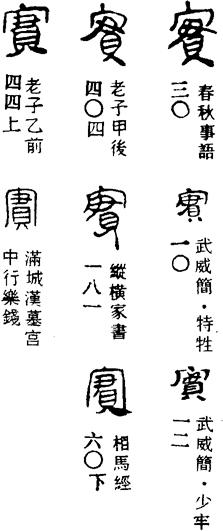 實
春秋事語
三〇
實
武威簡・特牲
一〇
實
武威簡・少牢
一二
實
老子甲後
四〇四
實
縱橫家書
一八一
實
相馬經
六〇下
實
老子乙前
四四上
實
滿城漢墓宮
中行樂錢